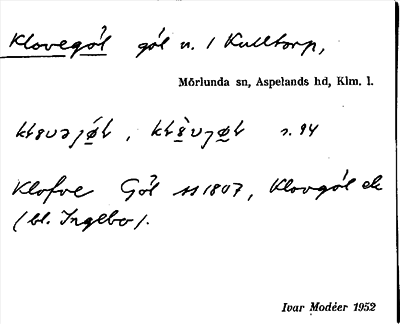 Klovegöl göl n. / Kulltorp,
Mörlunda sn, Aspelands hd, Klm. l.
s. 94
Klofve Göl ss 1807, Klovgöl ek
(bl. Ingebo).
Ivar Modéer 1952